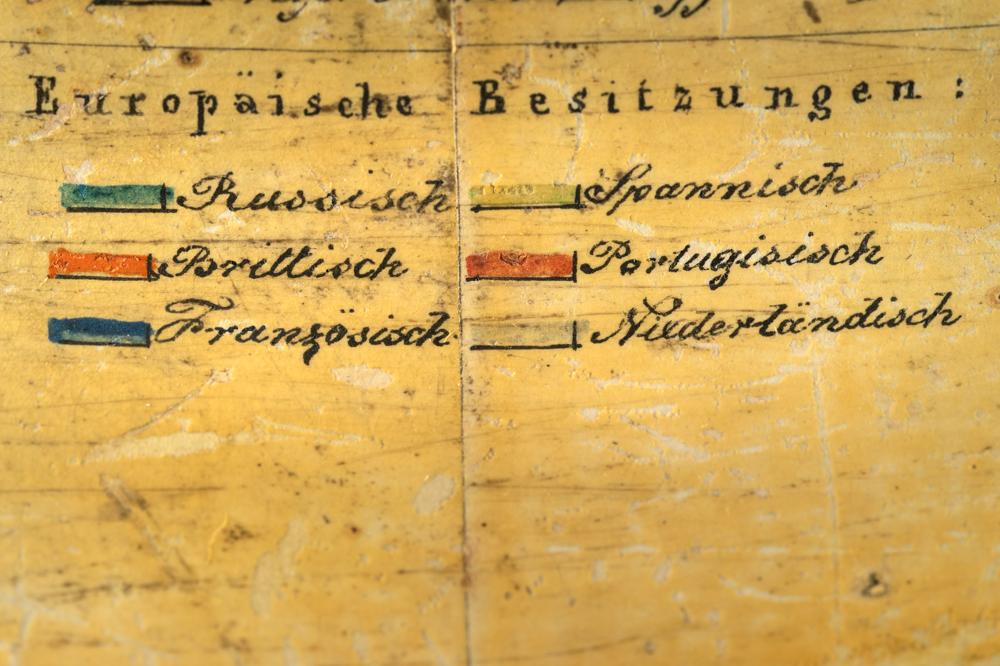 Europäische Besitzungen:
Russisch Spannisch
Brittisch Portugisisch
Französisch Niederländisch